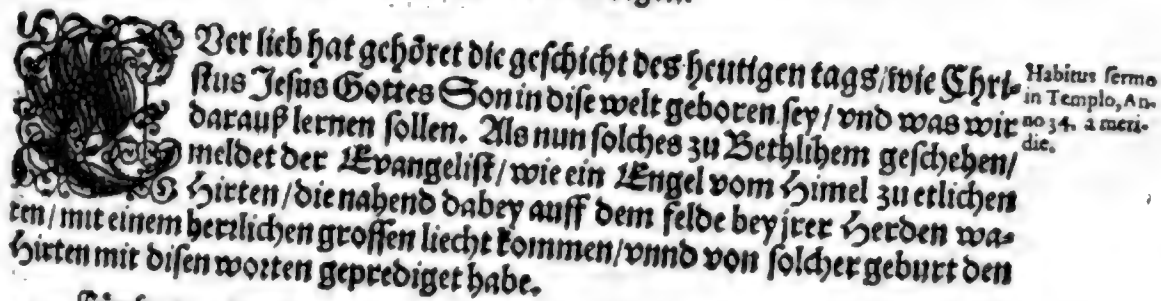 EVer lieb hat gehöret die geschicht des heutigen tags/wie Chri-
stus Jesus Gottes Son in dise welt geboren sey/vnd was wir
darauß lernen sollen. Als nun solches zu Bethlihem geschehen/
meldet der Evangelist/wie ein Engel vom Himel zu etlichen
Hirten/die nahend dabey auff dem felde bey jrer Herden wa-
ren/mit einem herrlichen grossen liecht kommen/vnnd von solcher geburt den
Hirten mit disen worten geprediget habe.
Habitus sermo
in Templo, An-
no 34. a meri-
die.